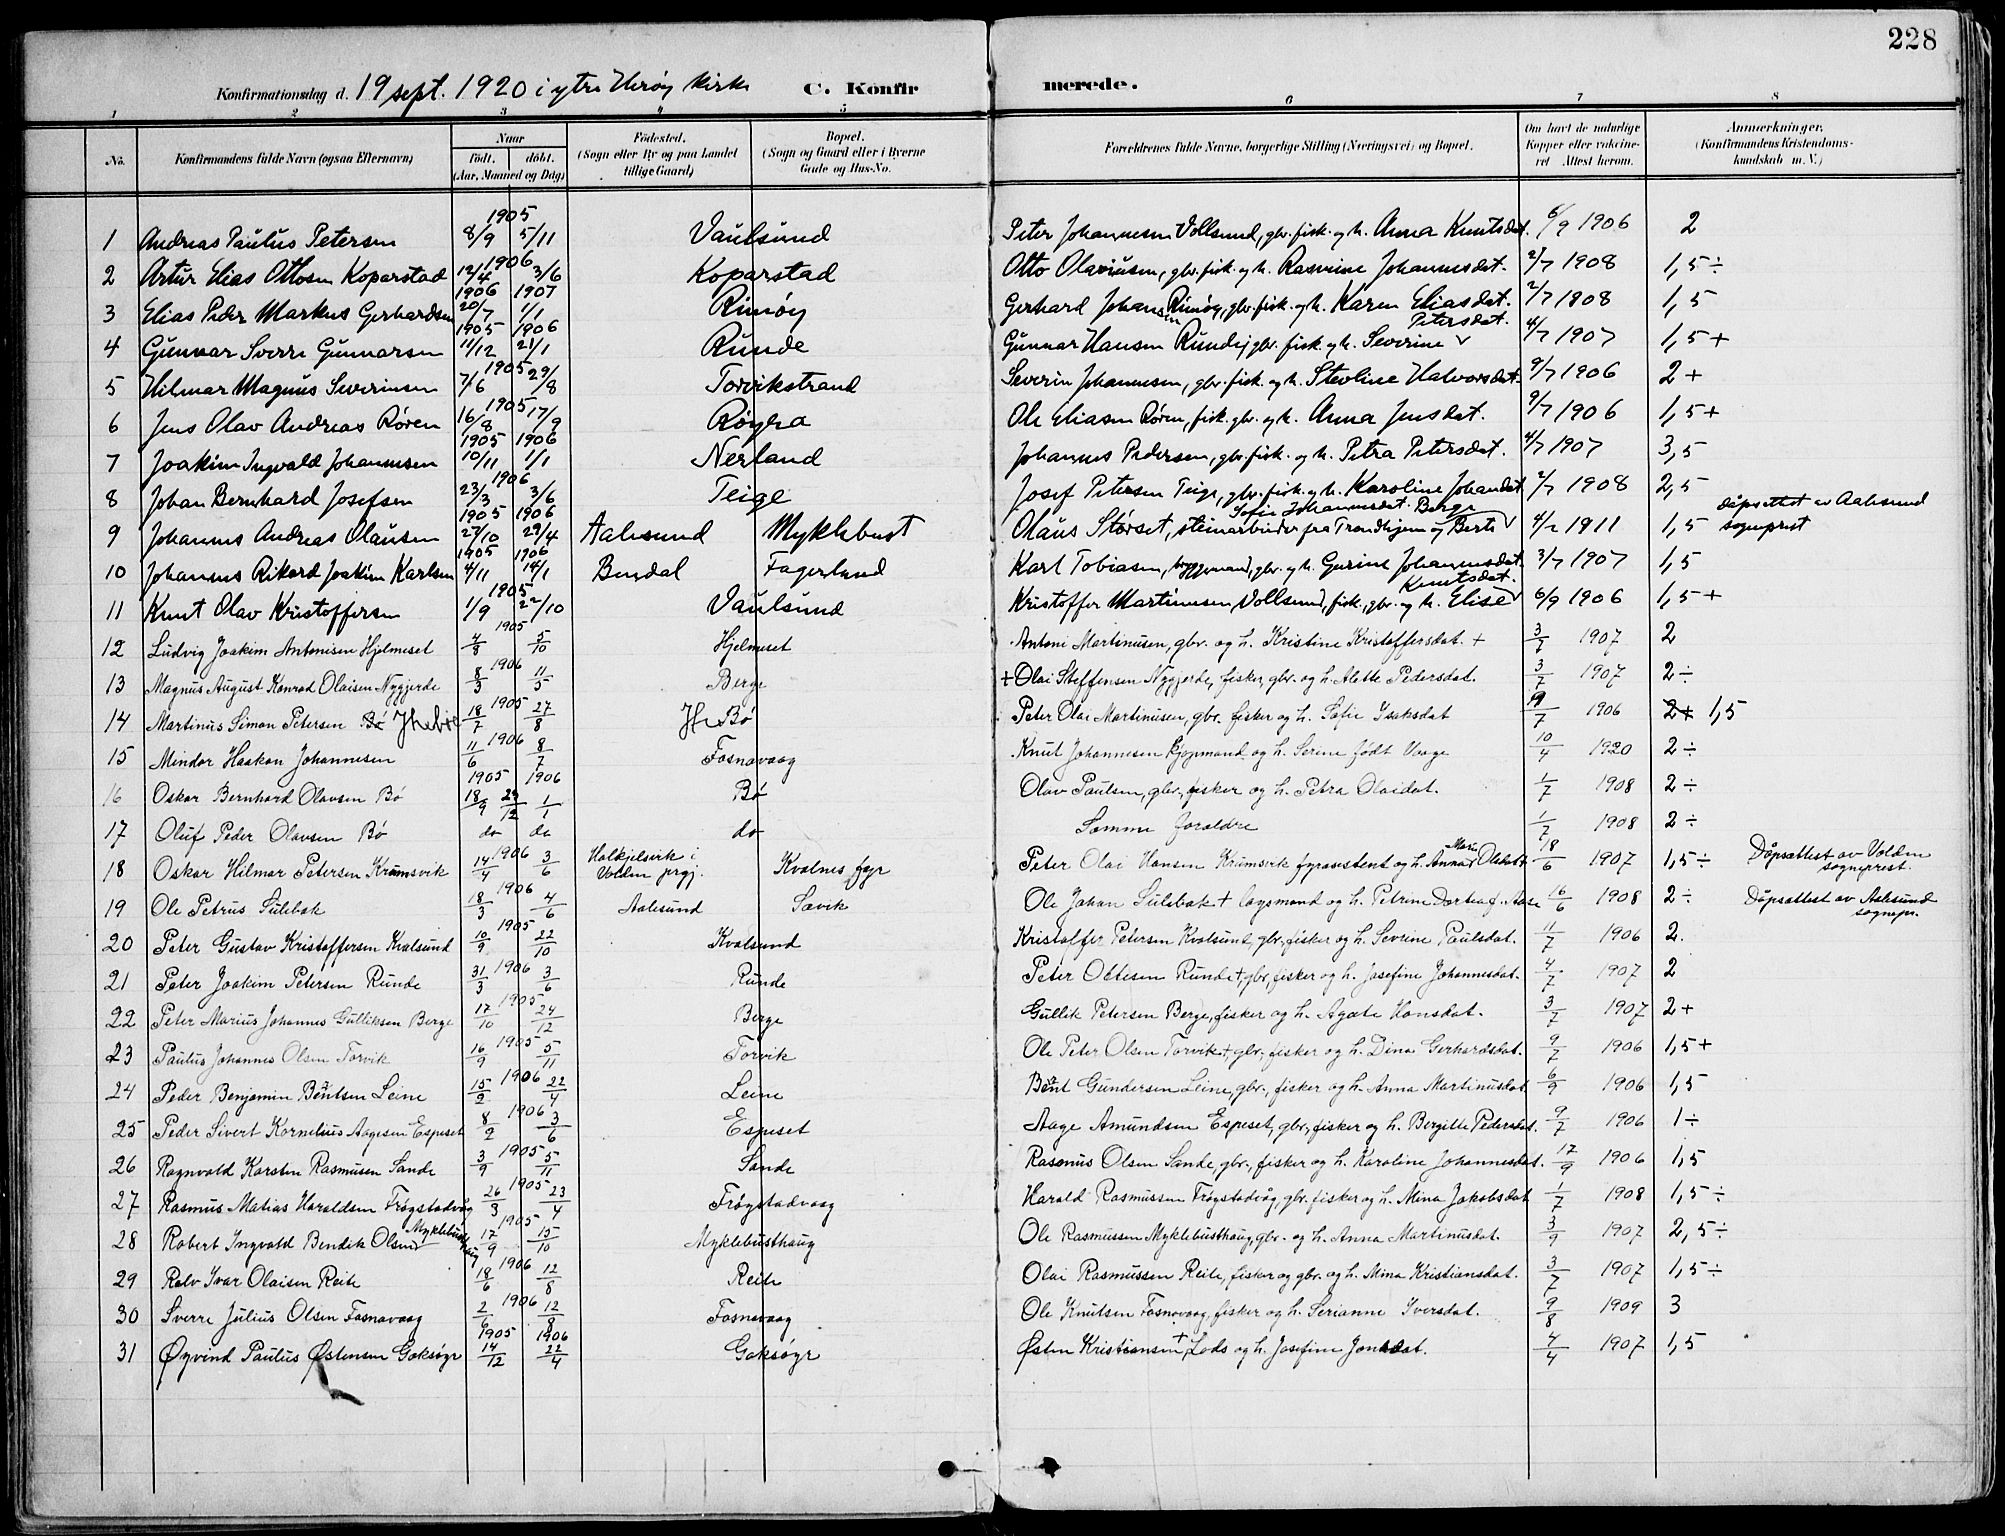 228
Konfirmationsdag d. 19 sept. 1920 i ytre Herøy kirke C. Konfirmerede.
1 2 3 4 5 6 7 8
No. Konfirmandens fulde Navn (ogsaa Efternavn) Naar født. døbt. (Aar, Maaned og Dag) Fødested. (Sogn eller By og paa Landet tillige Gaard) Bopæl. (Sogn og Gaard eller i Byerne Gade og Hus-No. Forældrenes fulde Navne, borgerlige Stilling (Næringsvei) og Bopæl. Om havt de naturlige Kopper eller vaccineret Attest herom. Anmærkninger. (Konfirmandens Kristendomskundskab m. V.)
1 Andreas Paulus Petersen 1905 8/9 5/11 Vaulsund Peter Johannesen Vollsund, gbr. fisk. og h. Anna Knutsdat. 6/9 1906 2
2 Artur Elias Ottosen Koparstad 1906 12/4 3/6 Koparstad Otto Olaviusen, gbr. fisk. og h. Rasmine Johannesdat. 2/7 1908 1,5 ÷
3 Elias Peder Markus Gerhardsen 1906 1907 20/7 1/1 Rimøy Gerhard Johansen Rimøy, gbr. fisk. og h. Karen Eliasdat. 2/7 1808 1,5
4 Gunnar Sverre Gunnarsen 1905 1906 11/12 21/1 Runde Gunnar Hansen Runde, gbr. fisk. og h. Severine Petersdat. 4/7 1907 1,5 +
5 Hilmar Magnus Severinsen 1905 7/6 29/8 Torvikstrand Severin Johannesen, gbr. fisk. og h. Stevline Halvorsdat. 9/7 1906 2 +
6 Jens Olav Andreas Røren 1905 16/8 17/9 Røyra Ole Eliasen Røren, fisk. gbr. og h. Anna Jensdat. 9/7 1906 1,5 +
7 Joakim Ingvald Johannesen 1905 1906 10/11 1/1 Nerland Johannes Pedersen, gbr. fisk. og h. Petra Petersdat. 4/7 1907 3,5
8 Johan Bernhard Josefsen 1906 23/3 3/6 Teige Josef Petersen Teige, gbr. fisk. og h. Karoline Johansdat 2/7 1908 2,5
9 Johannes Andreas Olausen 1905 1906 27/10 29/4 Aalesund Myklebust Olaus Størset, steinarbeider fra Trondhjem og Berte Sofie Johannesdat. Berge 4/2 1911 1,5 dåpsattest av Aalesund sogneprest
10 Johannes Rikard Joakim Karlsen 1905 1906 4/11 14/1 Bendal Fagerland Karl Tobiasen, byggmand, gbr. og h. Gurine Johannesdat. 3/7 1907 1,5
11 Knut Olav Kristoffersen 1905 1/9 22/10 Vaulsund Kristoffer Martinusen Vollsund, fisk., gbr. og h. Elise Knutsdat. 6/9 1906 1,5 +
12 Ludvig Joakim Antonisen Hjelmeset 1905 4/8 5/10 Hjelmeset Antoni Martinusen, gbr. og h. Kristine Kristoffersdat. + 3/7 1907 2
13 Magnus August Konrad Olaisen Nygjerde 1906 8/3 11/5 Berge + Olai Steffensen Nygjerde, fisker, gbr. og h. Alette Pedersdat. 3/7 1907 2 ÷
14 Martinus Simon Petersen 1905 18/7 27/8 Bø Peter Olai Martinusen, gbr. fisker og h. Sofie Isaksdat 9/7 1906 2+ 1,5
15 Mindor Haakon Johannesen 1906 11/6 8/7 Fosnavaag Knut Johannesen Kjøpmand og h. Serine født Vaage 10/4 1920 2 ÷
16 Oskar Bernhard Olavsen Bø 1905 1906 18/9 24/12 1/1 Bø Olav Paulsen, gbr., fisker og h. Petra Olaidat. 1/7 1908 2 ÷
17 Oluf Peder Olavsen Bø do do do Samme foraldre 1/7 1908 2 ÷
18 Oskar Hilmar Petersen Krumsvik 1906 14/4 3/6 Halkjelsvik i Volden prgj. Kvalnes fyr Peter Olai Hansen Krumsvik fyrassistent og h. Anna Marie Olsdat 18/6 1907 1,5 ÷ Dåpsattest av Volden sogneprest.
19 Ole Petrus Sulebak 1906 18/3 4/6 Aalesund Sævik Ole Johan Sulebak + laysmand og h. Petrine Dortea f. Aase 16/6 1908 2 ÷ Dåpsattest av Aalesund sognepr.
20 Peter Gustav Kristoffersen Kvalsund 1905 10/9 22/10 Kvalsund Kristoffer Petersen Kvalsund, gbr., fisker og h. Sevrine Paulsdat. 11/7 1906 2.
21 Peter Joakim Petersen Runde 1906 31/3 3/6 Runde Peter Ottesen Runde + gbr., fisker og h. Josefine Johannesdat. 4/7 1907 2
22 Peter Marius Johannes Gulliksen Berge 1905 17/10 24/12 Berge Gullik Petersen Berge, fisker og h. Agate Hansdat. 3/7 1907 2 +
23 Paulus Johannes Olsen Torvik 1905 16/9 5/11 Torvik Ole Peter Olsen Torvik + gbr., fisker og h. Dina Gerhardsdat. 9/7 1906 1,5 +
24 Peder Benjamin Bentsen Leine 1906 15/2 22/4 Leine Bent Gundersen Leine, gbr., fisker og h. Anna Martinusdat 6/9 1906 1,5
25 Peder Sivert Kornelius Aagesen Espeset 1906 8/2 3/6 Espeset Aage Amundsen Espeset, gbr., fisker og h. Bergitte Pedersdat. 9/7 1906 1 ÷
26 Ragnvald Karsten Rasmusen Sande 1905 3/9 5/11 Sande Rasmus Olsen Sande, gbr., fisker og h. Karoline Johannesdat. 17/9 1906 1,5
27 Rasmus Matias Haraldsen Frøystadvåg 1905 26/3 23/4 Frøystadvaag Harald Rasmussen Frøystadvåg, gbr. fisker og h. Mina Jakobsdat 1/7 1908 1,5 ÷
28 Robert Ingvald Bendik Olsen Myklebusthaug 1905 17/9 15/10 Myklebusthaug Ole Rasmussen Myklebusthaug, gbr. og h. Anna Martinusdat. 3/9 1907 2,5 ÷
29 Rolv Ivar Olaisen Reite 1906 18/6 12/8 Reite Olai Rasmussen Reite, fisker og gbr. og h. Mina Kristiansdat. 3/7 1907 1,5 ÷
30 Sverre Julius Olsen Fosnavaag 1906 2/6 12/8 Fosnavaag Ole Knutsen Fosnavaag, fisker og h. Serianne Iversdat. 9/8 1909 3
31 Øyvind Paulus Østensen Goksøyr 1905 1906 14/12 22/4 Goksøyr Østen Kristiansen + Lods og h. Josefine Jonsdat. 4/4 1907 1,5